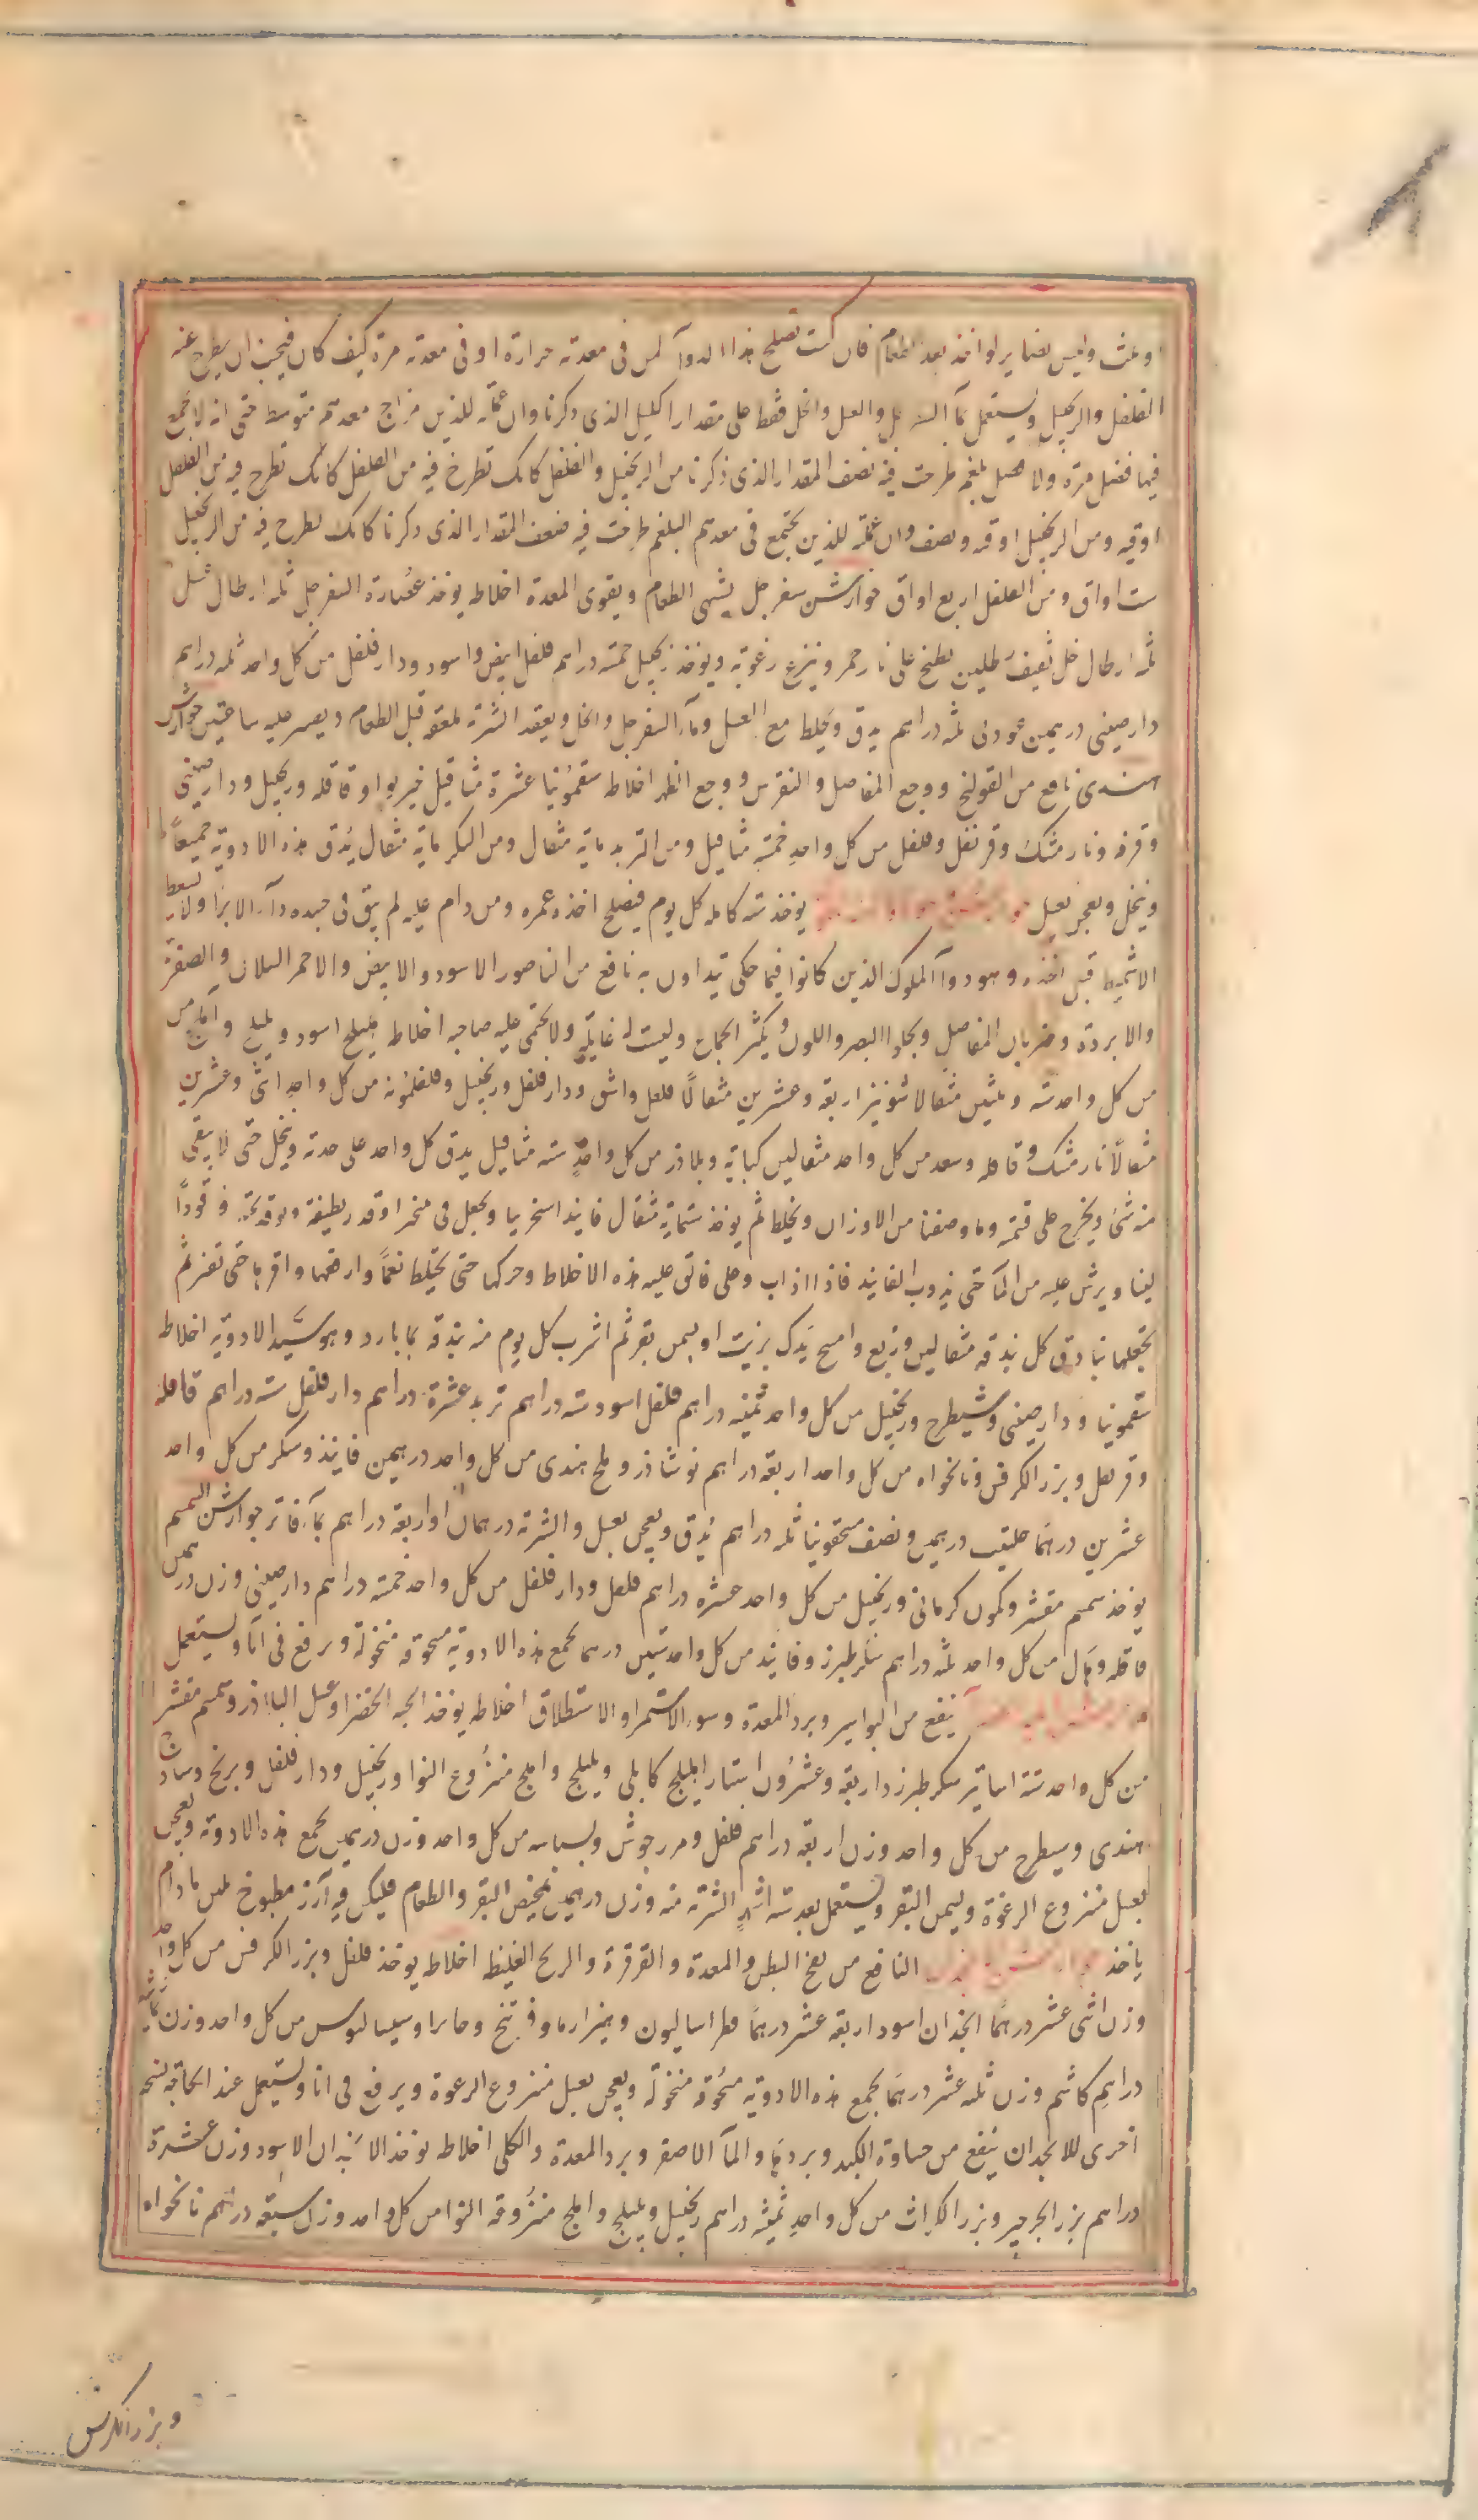 او ثلث وليس بضاير لو اخذ بعد الطعام فان كنت تصلح هذا الدوآ لمن فى معدته حرارة او فى معدته مرة كيف كان فيجب ان يطرح عنه
الفلفل والزنجبيل ويستعمل مآ السفرجل والعسل والخل فقط على مقدار الكيل الذى ذكرنا وان عملته للذين مزاج معدتهم متوسط حتى انه لا يجمع
فيها فضل مرة ولا فضل بلغم طرحت فيه نصف المقدار الذى ذكرنا من الزنجبيل والفلفل كانك تطرح فيه من الفلفل كانك تطرح فيه من الفلفل
اوقيه ومن الزنجبيل اوقيه ونصف وان عملته للذين يجتمع فى معدهم البلغم طرحت فيه ضعف المقدار الذى ذكرنا كانك تطرح فيه من الزنجبيل
ست اواق ومن الفلفل اربع اواق جوارشن سفرجل يشهى الطعام ويقوى المعدة اخلاطه يوخذ عصارة السفرجل ثلثه ارطال عسل
ثلثه ارطال خل ثقيف رطلين يطبخ على نار جمر وينزع رغوته ويوخذ زنجبيل خمسة دراهم فلفل ابيض واسود ودار فلفل من كل واحد ثلثه دراهم
دارصينى درهمين عود نى ثلثه دراهم يدق ويخلط مع العسل ومآ السفرجل والخل ويعقد الشربة ملعقه قبل الطعام ويصبر عليه ساعتين جوارشن
هندى نافع من القولنج ووجع المفاصل والنقرس ووجع الظهر اخلاطه سقمونيا عشرة مثاقيل خيربوا وقاقله وزنجبيل ودارصينى
وقرفه ونارمشك وقرنفل وفلفل من كل واحد خمسة مثاقيل ومن التربد ماية مثقال ومن السكر ماية مثقال يدق هذه الادوية جميعاً
وينخل ويعجن بعسل يوخذ سنه كامله كل يوم فيصلح اخذه عمره ومن دام عليه لم يبق فى جسده دآ الا برا ولا يسعط
الاشميط قبل اخذه وهو دوآ الملوك الذين كانوا فيما حكى يتداوون به نافع من الناصور الاسود والابيض والاحمر السلاق والصفرة
والابردة وضربان المفاصل ويجلوا البصر واللون ويكثر الجماع وليست له غايلة ولا يحتمى عليه صاحبه اخلاطه هليلج اسود وبليلج واملج من
من كل واحد ستة وثلثين مثقالا شونيز اربعة وعشرين مثقالاً فلفل واشق ودار فلفل وزنجبيل وفلفلمونه من كل واحد اثنى وعشرين
مثقالاً نارمشك وقاقله وسعد من كل واحد مثقالين كبابة وبلاذر من كل واحد سته مثاقيل يدق كل واحد على حدته وينخل حتى لا يبقى
منه شئ ويخرج على قسمته وما وصفنا من الاوزان ويخلط ثم يوخذ ستماية مثقال فانيد اسخريا ويجعل فى منخر او قدر نظيفة ويوقد تحته وقوداً
لينا ويرش عليه من المآ حتى يذوب الفانيد فاذا ذاب وغلى فالق عليه هذه الاخلاط وحركها حتى يختلط نعماً وارفعها واقرها حتى تفتر ثم
تجعلها بنادق كل بندقه مثقالين وربع وامسح يدك بزيت او بسمن بقر ثم اشرب كل يوم منه بندقه بما بارد وهو سيد الادوية اخلاطه
سقمونيا ودارصينى وشيطرج وزنجبيل من كل واحد ثمنيه دراهم فلفل اسود سته دراهم تربد عشرة دراهم دار فلفل سته دراهم قاقله
وقرنفل وبزر الكرفس ونانخواه من كل واحد اربعة دراهم نوشاذر وملح هندى من كل واحد درهمين فانيذ وسكر من كل واحد
عشرين درهما حلتيت درهمين ونصف سقمونيا ثلثه دراهم يدق ويعجن بعسل والشربة درهمان او اربعة دراهم بمآ فاتر جوارشن السمسم
يوخذ سمسم مقشر وكمون كرمانى وزنجبيل من كل واحد عشرة دراهم فلفل ودار فلفل من كل واحد خمسة دراهم دارصينى وزن درهمين
قاقله وهال من كل واحد ثلثه دراهم سكر طبرزد وفانيد من كل واحد ستين درهما يجمع هذه الادوية مسحوقه منخولة ويرفع فى انآ ويستعمل
ينفع من البواسير وبرد المعدة وسو الاستمرا والاستطلاق اخلاطه يوخذ الحبه الخضرا وعسل البلاذر وسمسم مقشر
من كل واحد ستة اساتير سكر طبرزد اربعة وعشرون استار اهليلج كابلى وبليلج واملج منزوع النوا وزنجبيل ودار فلفل وبرنج وساذج
هندى وشيطرج من كل واحد وزن اربعة دراهم فلفل ومرزجوش وبسباسه من كل واحد وزن درهمين يجمع هذه الادوية ويعجن
بعسل منزوع الرغوة وبسمن البقر ويستعمل بعد ستة اشهر الشربة منه وزن درهمين بمخيض البقر والطعام فليكن فيه ارز مطبوخ بلبن ما دام
ياخذ النافع من نفخ البطن والمعدة والقرقرة والريح الغليظه اخلاطه يوخذ فلفل وبزر الكرفس من كل واحد
وزن اثنى عشر درهما انجذان اسود اربعة عشر درهماً فطراساليون وفوتنج وحاما وسيساليوس من كل واحد وزن ثمانيه
دراهم كاشم وزن ثلثه عشر درهما يجمع هذه الادوية مسحوقه منخولة ويعجن بعسل منزوع الرغوة ويرفع فى انا ويستعمل عند الحاجة نسخه
اخرى للانجدان ينفع من جساوة الكبد وبردها والمآ الاصفر وبرد المعدة والكلى اخلاطه يوخذ الانجدان الاسود وزن عشرة
دراهم بزر الجرجير وبزر الكراث من كل واحد ثمنيه دراهم زنجبيل وبليلج واملج منزوعه النوا من كل واحد وزن سبعة دراهم نانخواه
وبزر الكرفس